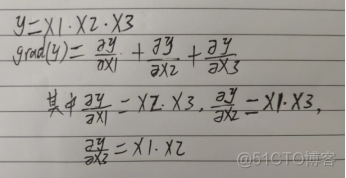 y=X1·X2·X3
grad(y)=∂y/∂X1+∂y/∂X2+∂y/∂X3
其中∂y/∂X1=X2·X3,∂y/∂X2=X1·X3,
∂y/∂X3=X1·X2
@51CTO博客